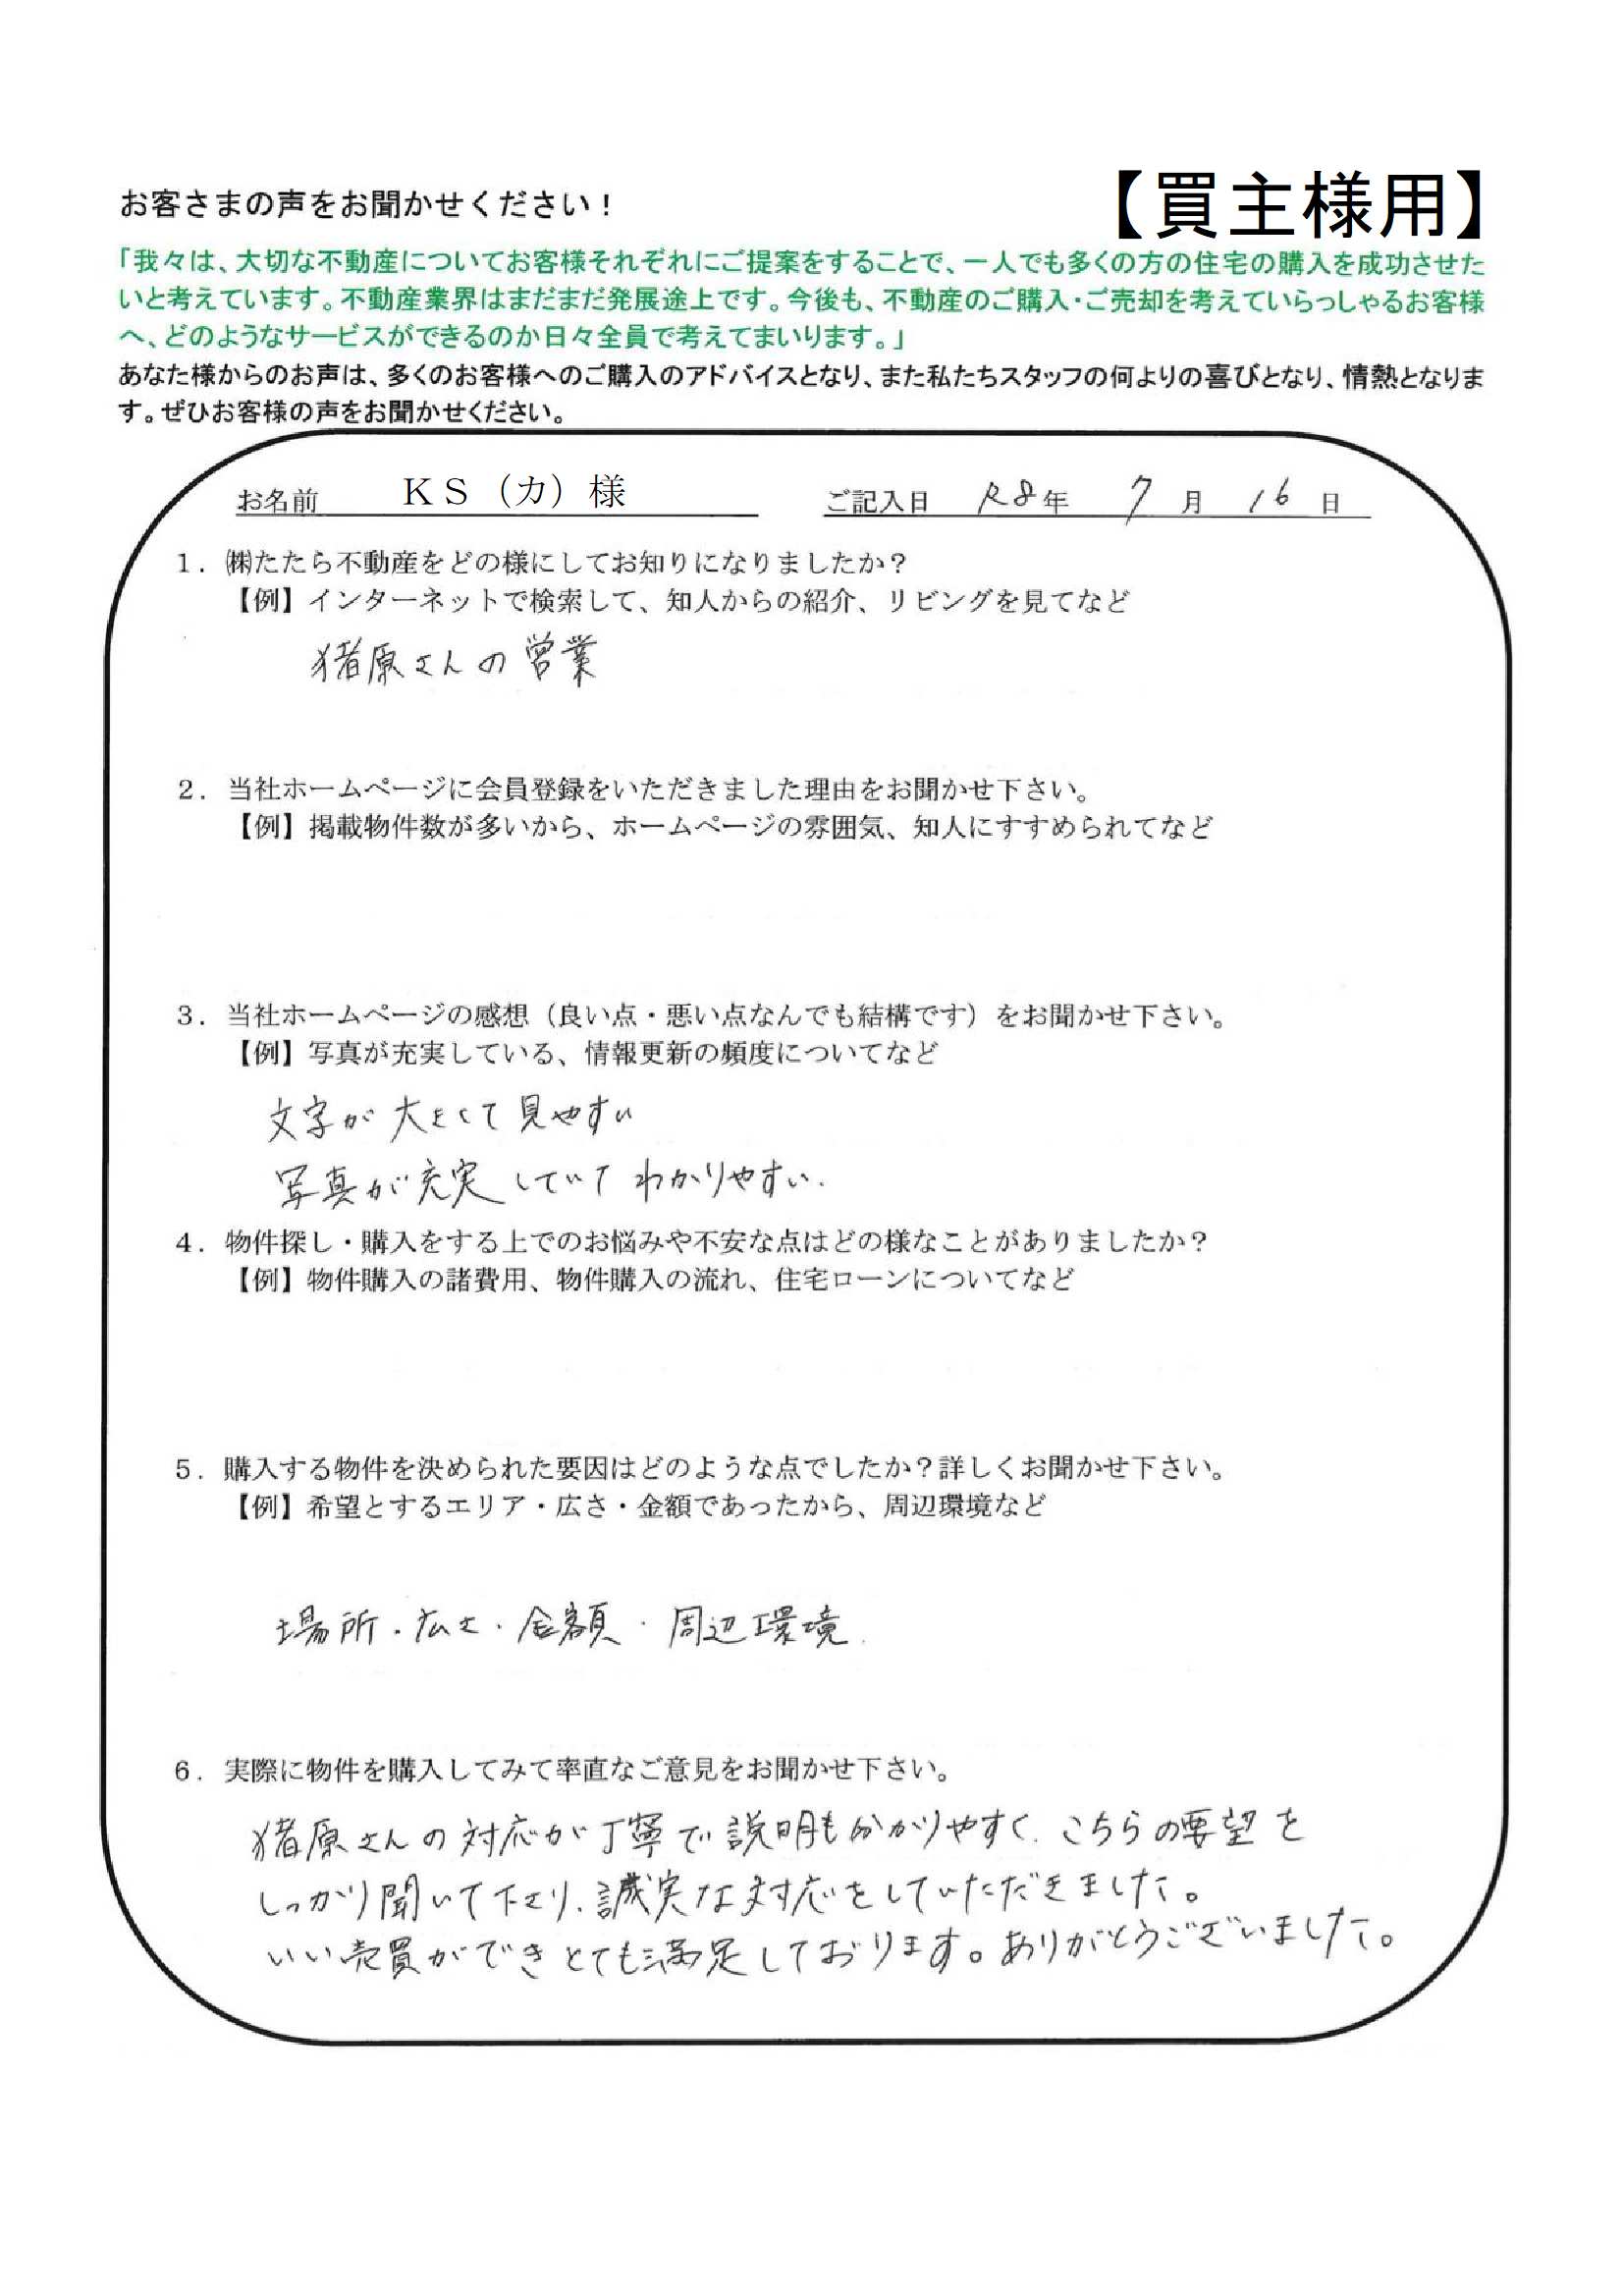 お客さまの声をお聞かせください！
【買主様用】
「我々は、大切な不動産についてお客様それぞれにご提案をすることで、一人でも多くの方の住宅の購入を成功させた
いと考えています。不動産業界はまだまだ発展途上です。今後も、不動産のご購入・ご売却を考えていらっしゃるお客様
へ、どのようなサービスができるのか日々全員で考えてまいります。」
あなた様からのお声は、多くのお客様へのご購入のアドバイスとなり、また私たちスタッフの何よりの喜びとなり、情熱となりま
す。ぜひお客様の声をお聞かせください。
お名前 ＫＳ（カ）様 ご記入日 R8年 7月 16日
１．㈱たたら不動産をどの様にしてお知りになりましたか？
【例】インターネットで検索して、知人からの紹介、リビングを見てなど
猪原さんの営業
２．当社ホームページに会員登録をいただきました理由をお聞かせ下さい。
【例】掲載物件数が多いから、ホームページの雰囲気、知人にすすめられてなど
３．当社ホームページの感想（良い点・悪い点なんでも結構です）をお聞かせ下さい。
【例】写真が充実している、情報更新の頻度についてなど
文字が大きくて見やすい
写真が充実していてわかりやすい．
４．物件探し・購入をする上でのお悩みや不安な点はどの様なことがありましたか？
【例】物件購入の諸費用、物件購入の流れ、住宅ローンについてなど
５．購入する物件を決められた要因はどのような点でしたか？詳しくお聞かせ下さい。
【例】希望とするエリア・広さ・金額であったから、周辺環境など
場所・広さ・金額・周辺環境．
６．実際に物件を購入してみて率直なご意見をお聞かせ下さい。
猪原さんの対応が丁寧で説明も分かりやすく、こちらの要望を
しっかり聞いて下さり、誠実な対応をしていただきました。
いい売買ができとても満足しております。ありがとうございました。